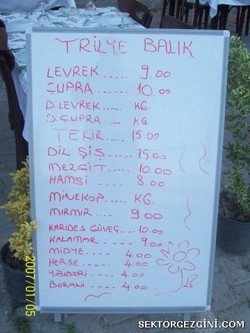 TRİLYE BALIK
LEVREK ..... 9.00
ÇUPRA ..... 10.00
D LEVREK .... KG
D ÇUPRA ..... KG.
TEKİR ..... 15.00
DİL ŞİŞ ..... 15.00
MEZGİT ..... 10.00
HAMSİ ..... 8.00
MİNEKOP ..... KG
MIRMIR ..... 9.00
KARİDES GÜVEÇ .. 10.00
KALAMAR .... 9.00
MİDYE ..... 4.00
HERSE ..... 4.00
4.00
BORANİ .. 4.00
2007/01/05
SEKTORGEZGİNİ.COM